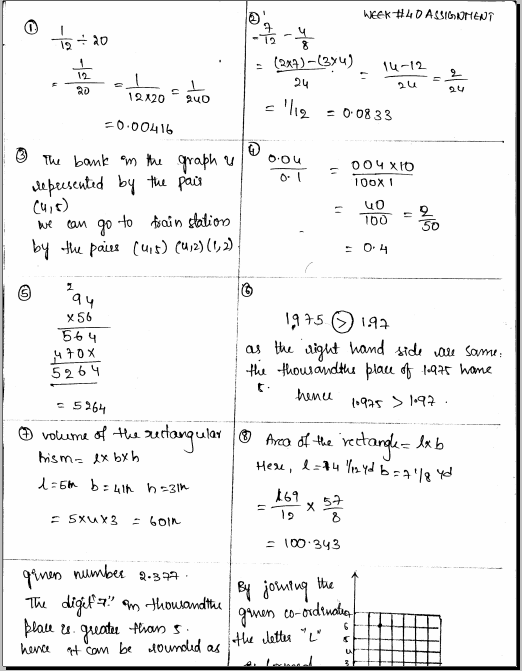 WEEK #40 ASSIGNMENT
① 1/12 ÷ 20
= 1/12 / 20 = 1/12×20 = 1/240
= 0.00416
② 7/12 - 4/8
= (2×7)-(3×4)/24 = 14-12/24 = 2/24
= 1/12 = 0.0833
③ The bank in the graph is
represented by the pair
(4,5)
we can go to train station
by the pairs (4,5) (4,2) (1,2)
④ 0.04/0.1 = 004×10/100×1
= 40/100 = 2/50
= 0.4
⑤ 2
94
×56
564
470×
5264
= 5264
⑥
1.975 > 1.97
as the right hand side are same.
the thousandths place of 1.975 have
5.
hence 1.975 > 1.97.
⑦ volume of the rectangular
Prism = l×b×h
l=5in b=4in h=3in
= 5×4×3 = 60in
⑧ Area of the rectangle = l×b
Here, l=14 1/12 yd b=7 1/8 yd
= 169/12 × 57/8
= 100.343
given number 2.377.
The digit "7" in thousandths
place is greater than 5.
hence it can be rounded as
By joining the
given co-ordinates
the letter "L"
is formed
6
5
4
3